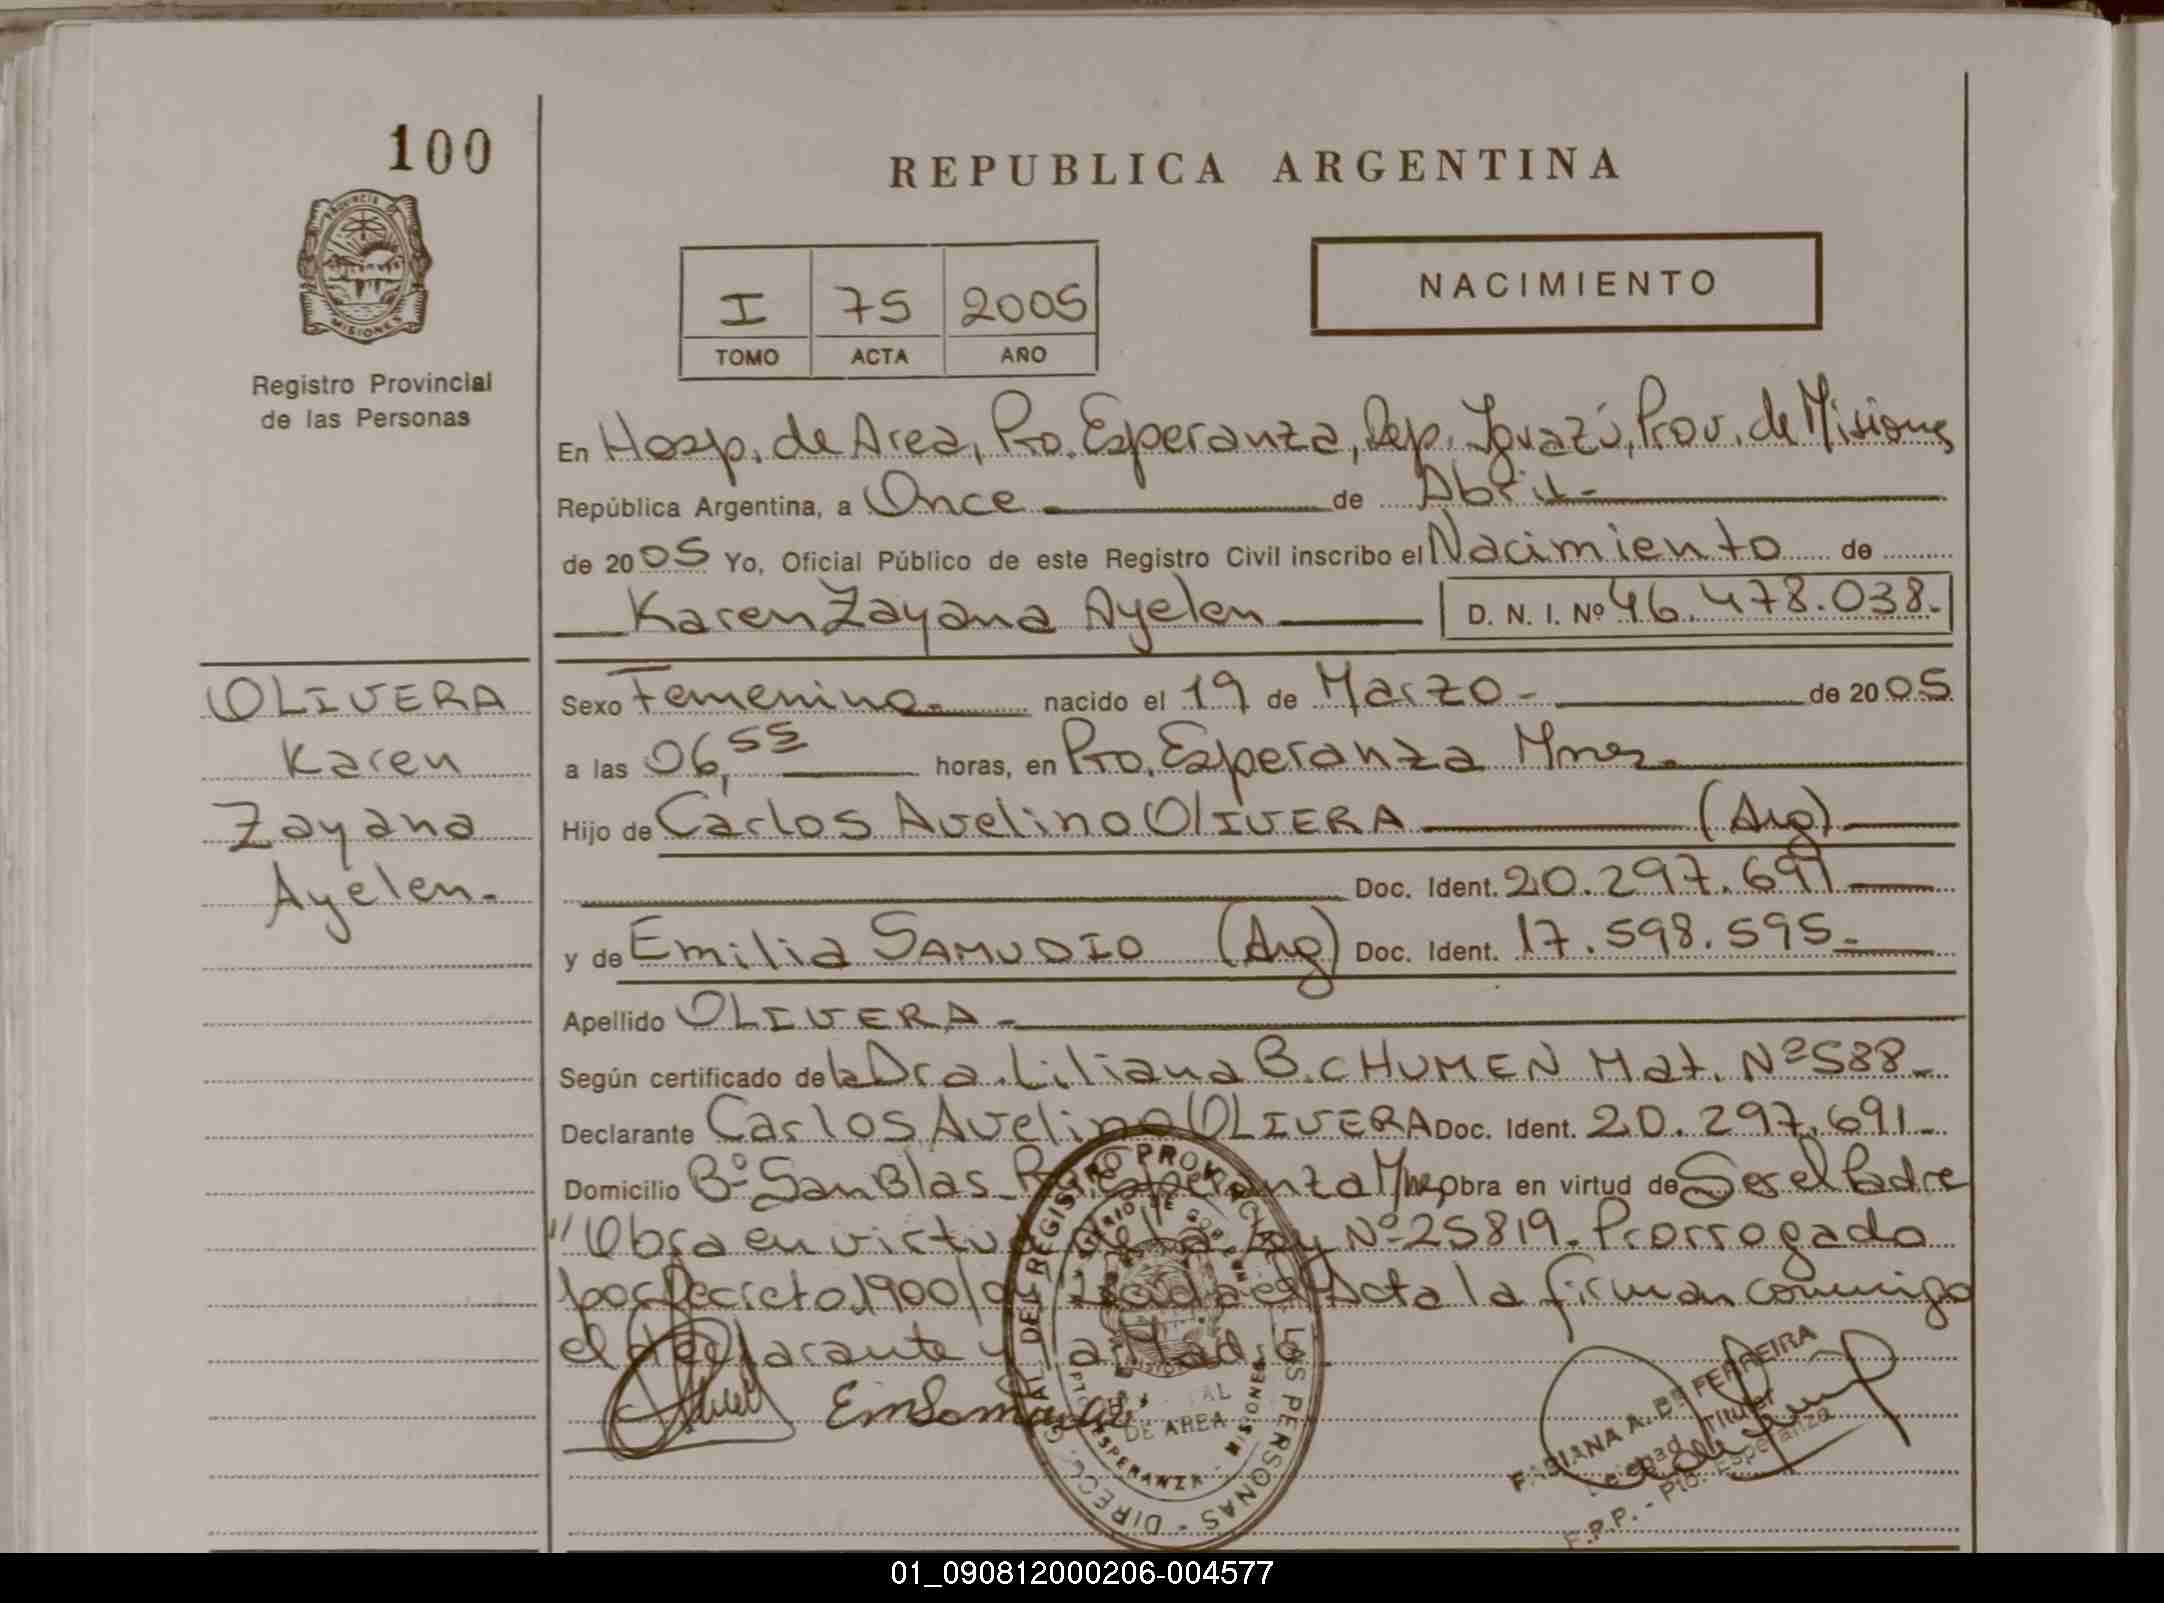 100
REPUBLICA ARGENTINA
PROVINCIA
MISIONES
Registro Provincial
de las Personas
NACIMIENTO
I 75 2005
TOMO ACTA AÑO
En Hosp. de Area, Pto. Esperanza, Dep. Iguazú, Prov. de Misiones
República Argentina, a Once de Abril-
de 2005 Yo, Oficial Público de este Registro Civil inscribo el Nacimiento de
Karen Zayana Ayelen D. N. I. Nº 46.478.038.-
OLIVERA
Karen
Zayana
Ayelen.-
Sexo Femenino.- nacido el 19 de Marzo - de 2005
a las 06,55 horas, en Pto. Esperanza Mnes.
Hijo de Carlos Avelino OLIVERA (Arg)
Doc. Ident. 20.297.691
y de Emilia SAMUDIO (Arg) Doc. Ident. 17.598.595.-
Apellido OLIVERA -
Según certificado de la Dra. Liliana B. CHUMEN Mat. Nº 588.-
Declarante Carlos Avelino OLIVERA Doc. Ident. 20.297.691.-
Domicilio Bº San Blas Pto. Esperanza Mnes obra en virtud de Ser el Padre
"Obra en virtud de la Ley Nº 25819. Prorrogado
por Decreto 1900/04 Leída el Acta la firman conmigo
el declarante y la Madre
DIRECC. GRAL DE REGISTRO PROVINCIAL DE LAS PERSONAS
DE AREA
PTO ESPERANZA - MISIONES
FABIANA A. DE FERREIRA
Titular
R.P.P. - Pto. Esperanza
01_090812000206-004577